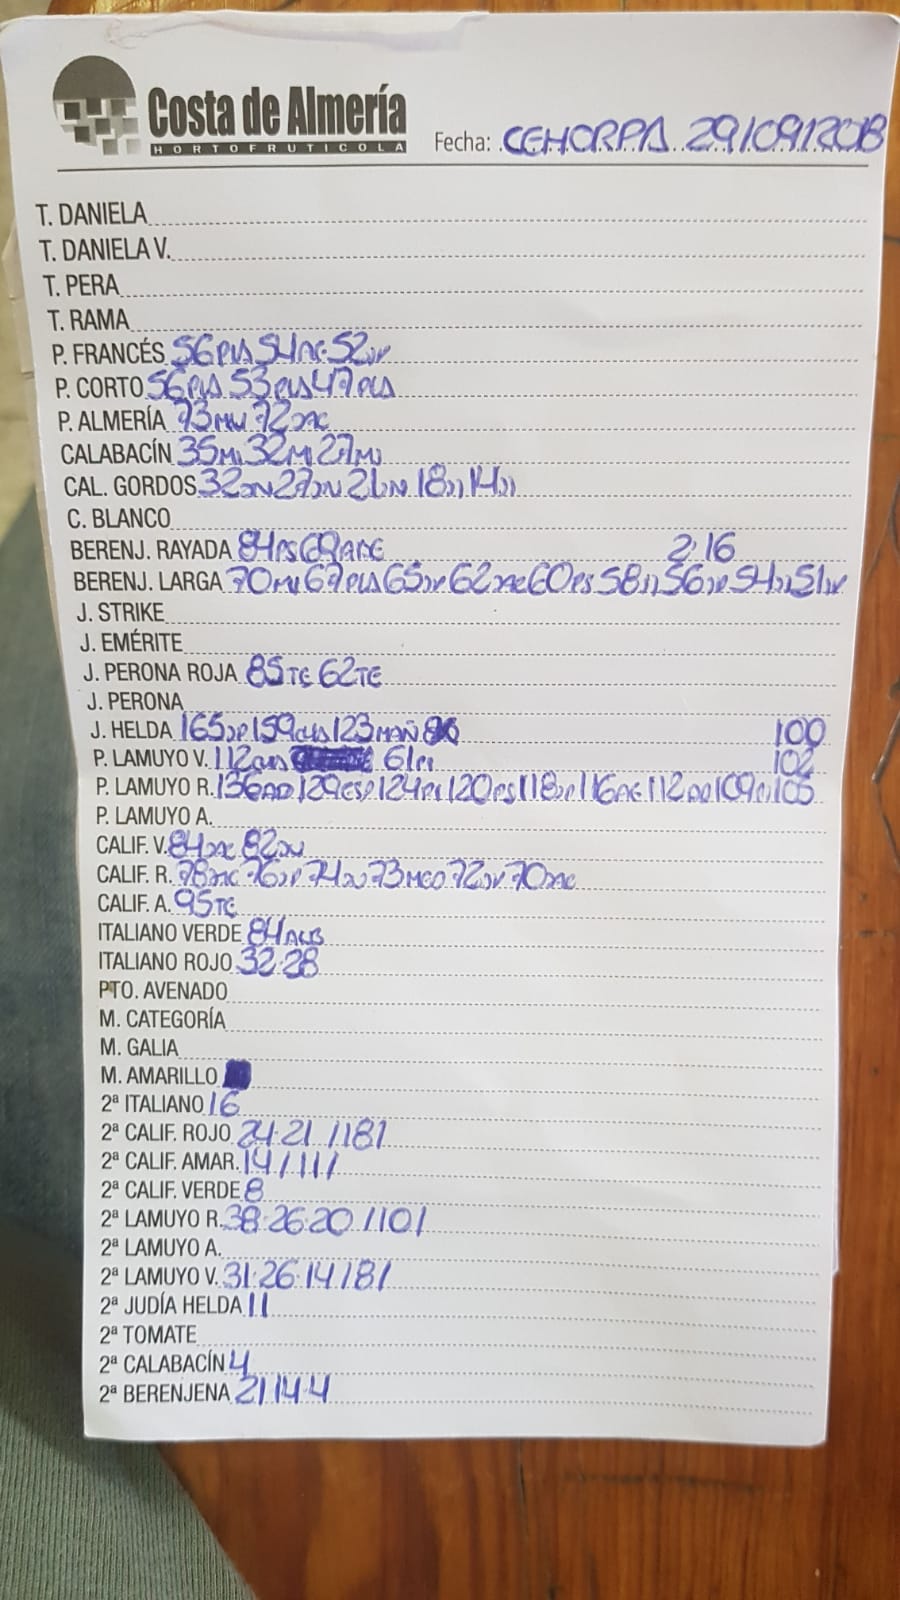 Costa de Almería
HORTOFRUTICOLA
Fecha: CEHORPA 29/09/2018
T. DANIELA
T. DANIELA V.
T. PERA
T. RAMA
P. FRANCÉS 56 PLS 54 AC 52
P. CORTO 56 PLS 53 PLS 47 PLS
P. ALMERÍA 73 72
CALABACÍN 35 32 27
CAL. GORDOS 32 27 21 18 )) 14 ))
C. BLANCO
BERENJ. RAYADA 84 PS 69 2'16
BERENJ. LARGA 70 67 PLS 65 62 60 PS 58 )) 56 54 )) 51
J. STRIKE
J. EMÉRITE
J. PERONA ROJA 85 TE 62 TE
J. PERONA
J. HELDA 165 159 123 MAÑ 100
P. LAMUYO V. 112 61 102
P. LAMUYO R. 136 AD 129 ESP 124 120 PS 118 116 AC 112 109 105
P. LAMUYO A.
CALIF. V. 84 82
CALIF. R. 78 76 74 73 MEO 72 70
CALIF. A. 95 TE
ITALIANO VERDE 84
ITALIANO ROJO 32·28
PTO. AVENADO
M. CATEGORÍA
M. GALIA
M. AMARILLO
2ª ITALIANO 16
2ª CALIF. ROJO 24·21 /18/
2ª CALIF. AMAR. 14 /11/
2ª CALIF. VERDE 8
2ª LAMUYO R. 38·26·20 /10/
2ª LAMUYO A.
2ª LAMUYO V. 31·26·14 /8/
2ª JUDÍA HELDA 11
2ª TOMATE
2ª CALABACÍN 4
2ª BERENJENA 21 14·4